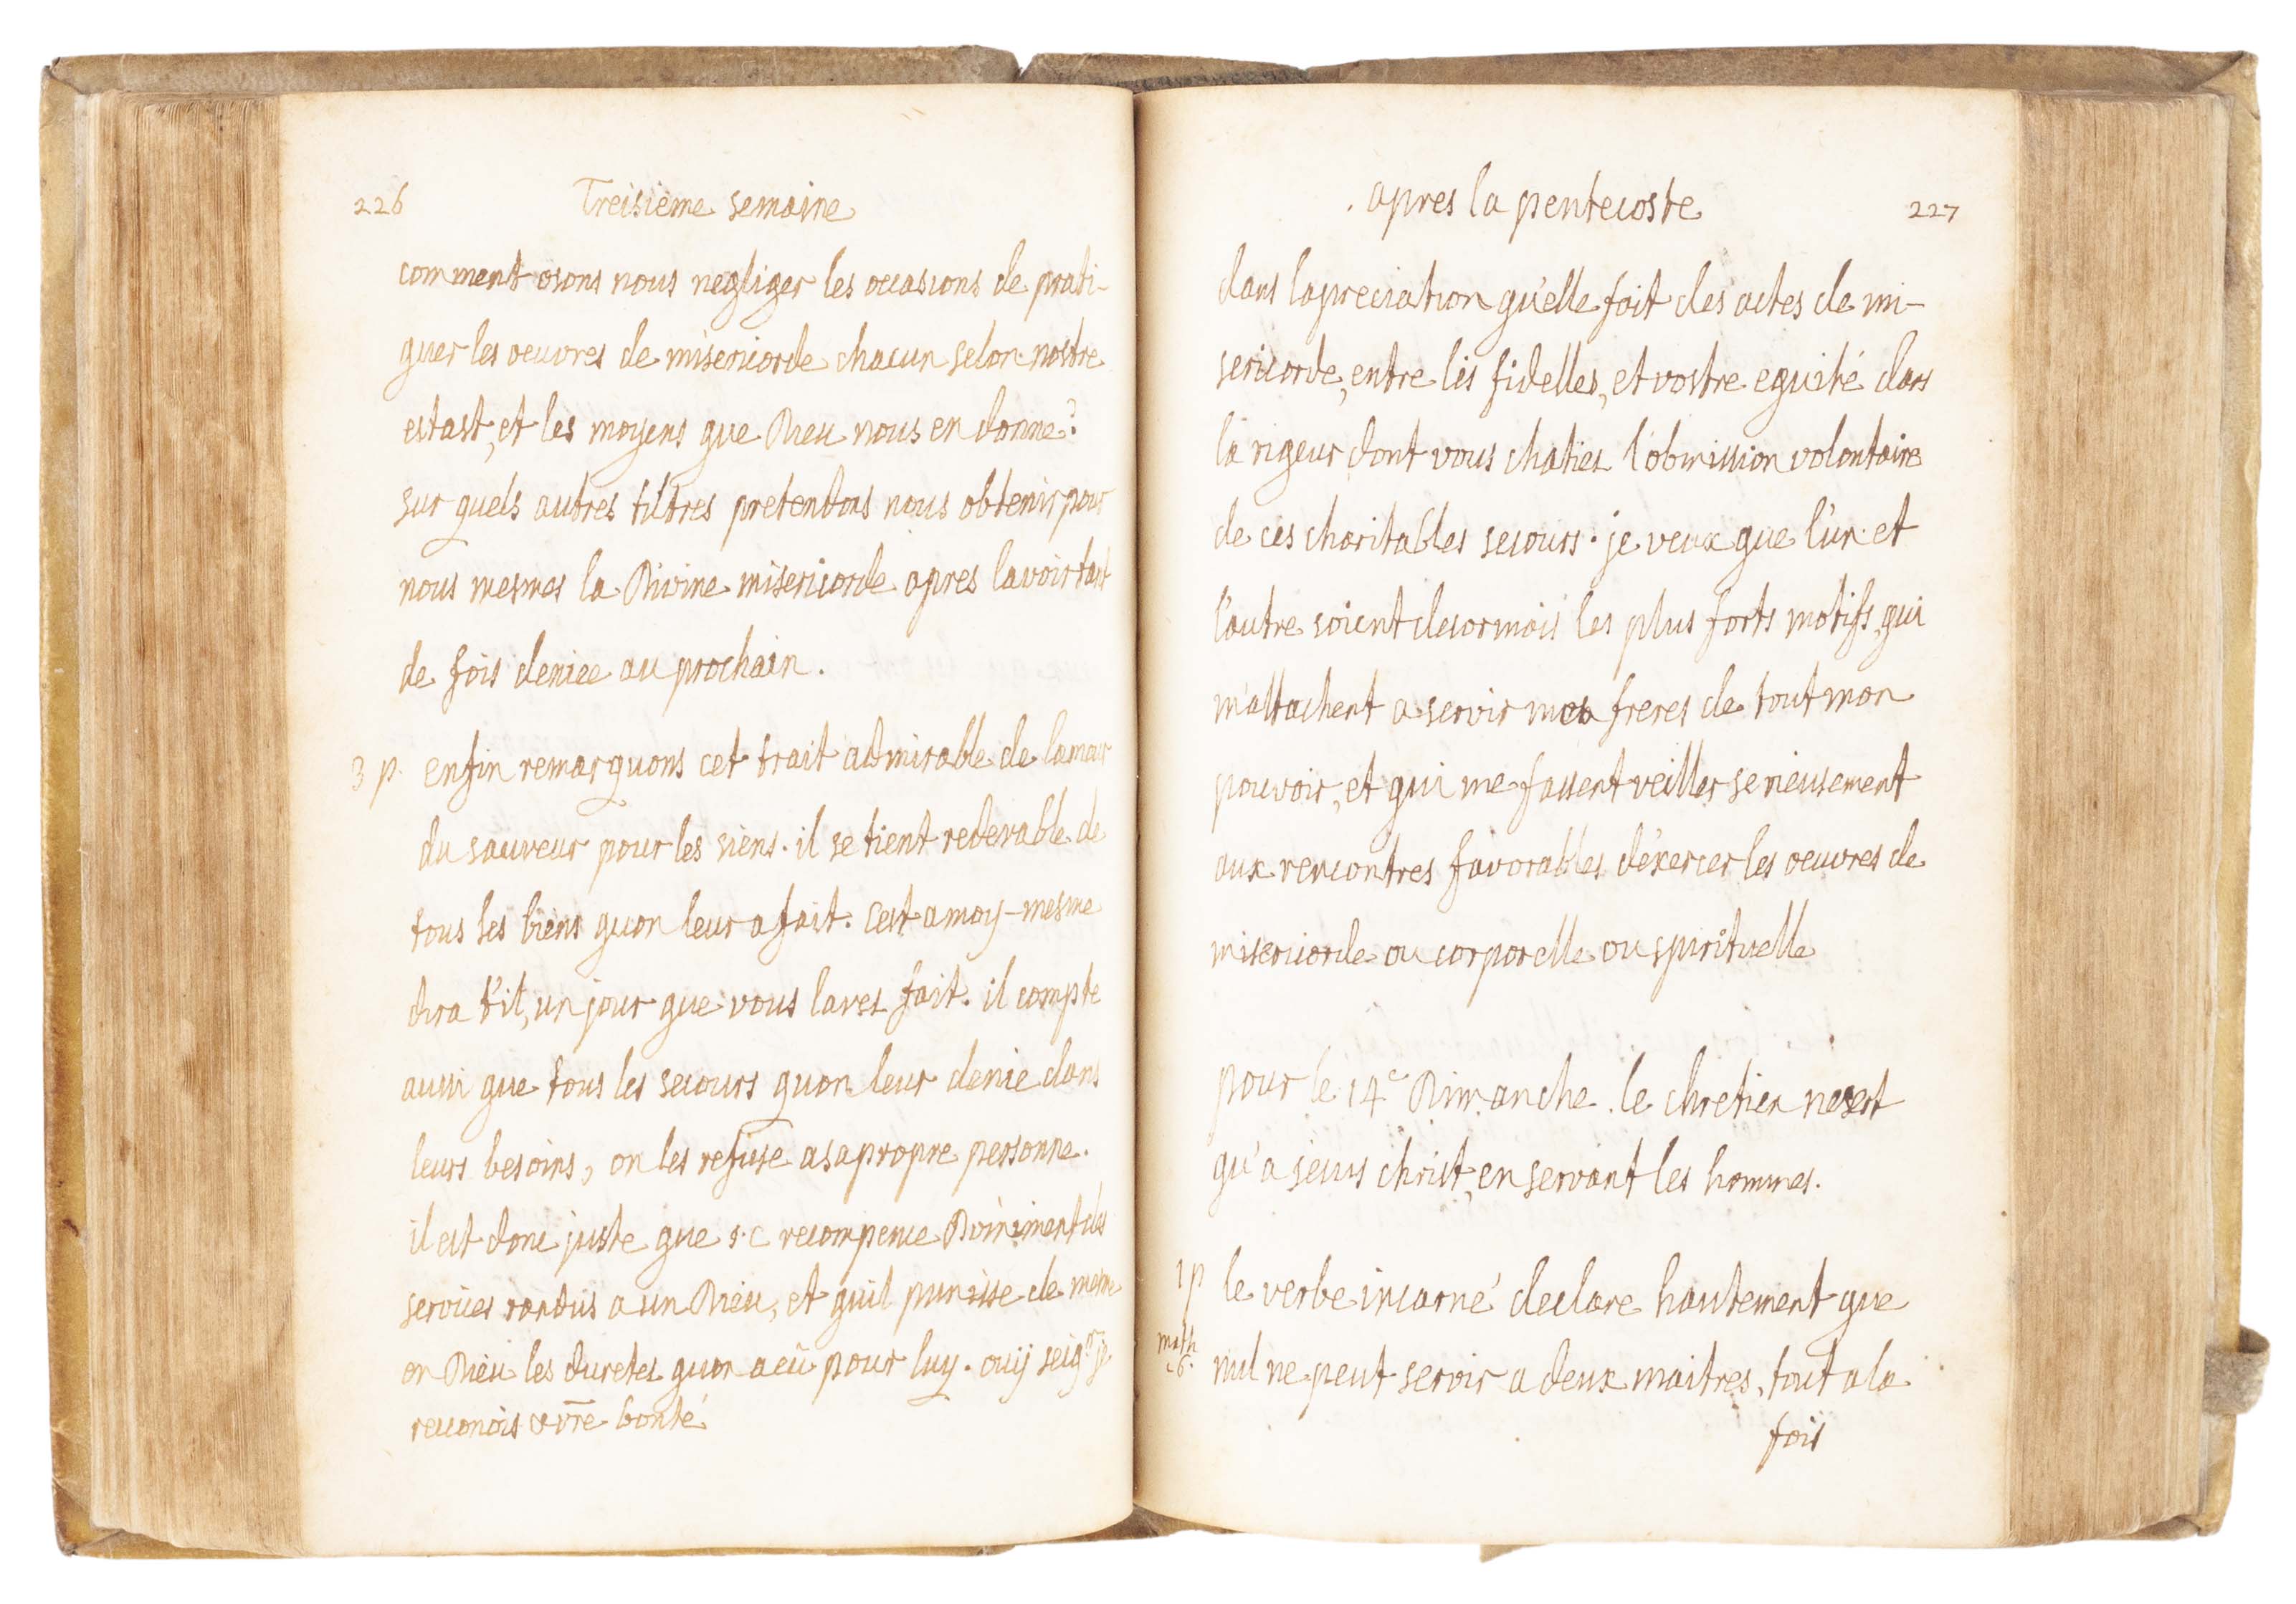 226 Treisieme semaine
comment osons nous negliger les occasions de prati-
quer les oeuvres de misericorde chacun selon nostre
estast, et les moyens que Dieu nous en donne?
sur quels autres tiltres pretendons nous obtenir pour
nous mesmes la Divine misericorde apres lavoir tant
de fois deniee au prochain.
3 p. enfin remarquons cet trait admirable de lamour
du sauveur pour les siens. il se tient redevable de
tous les biens quon leur a fait. cest a moy-mesme
dira t'il, un jour que vous laves fait. il compte
aussi que tous les secours quon leur denie dans
leurs besoins, on les refuse a sa propre personne.
il est donc juste que s.c recompense Divinement des
services randus a un Dieu, et quil punisse de mesme
en Dieu les duretes quon a eü pour luy. ouy seigr je
reconois vre bonté
. apres la pentecoste 227
dans lapreciation qu'elle fait des actes de mi-
sericorde, entre les fidelles, et vostre equité dans
la rigeur dont vous chaties l'obmission volontaire
de ces charitables secours. je veux que l'un et
l'autre soient desormais les plus forts motifs, qui
m'attachent a servir mes freres de tout mon
pouvoir, et qui me fassent veiller serieusement
aux rencontres favorables d'exercer les oeuvres de
misericorde ou corporelle ou spirituelle
pour le 14e Dimanche. le chretien ne sert
qu'a jesus christ, en servant les hommes.
1 p le verbe incarné declare hautement que
math 6. nul ne peut servir a deux maitres, tout a la
fois